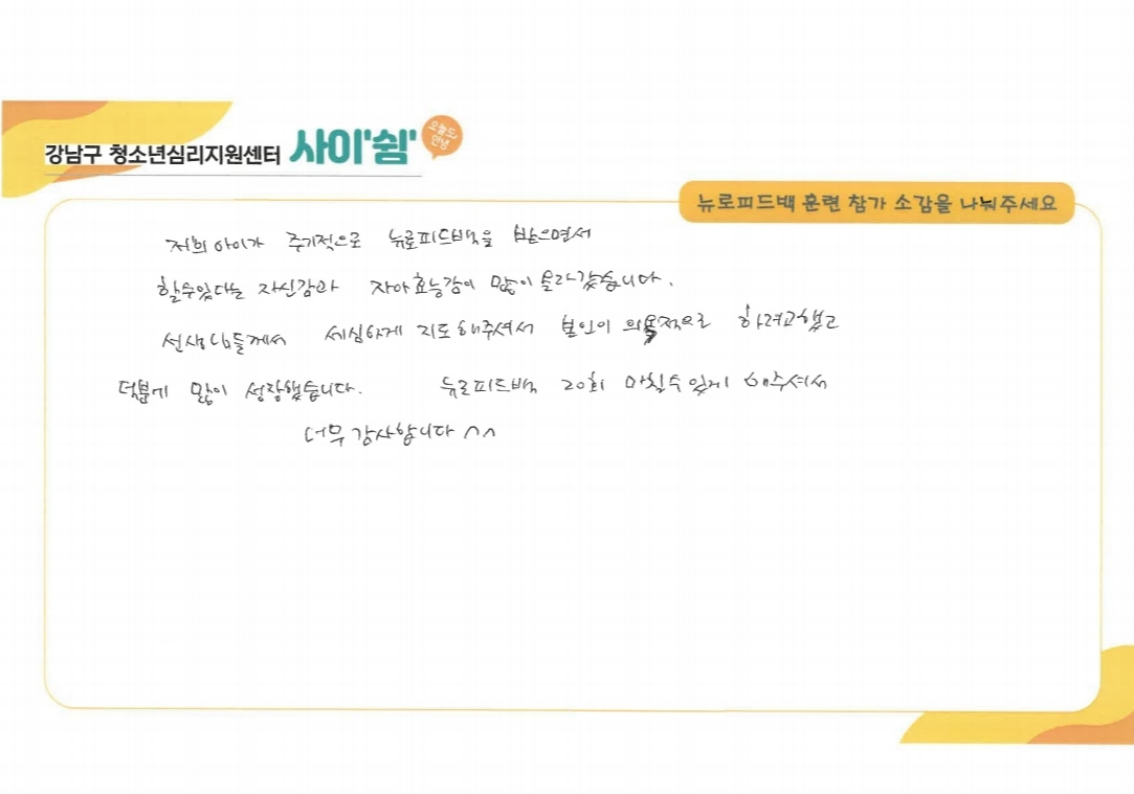 강남구 청소년심리지원센터 사이'쉼'
오늘도
안녕
뉴로피드백 훈련 참가 소감을 나눠주세요
저희 아이가 주기적으로 뉴로피드백을 받으면서
할수있다는 자신감과 자아효능감이 많이 올라갔습니다.
선생님들께서 세심하게 지도해주셔서 본인이 의욕적으로 하려고했고
덕분에 많이 성장했습니다. 뉴로피드백 20회 마칠수있게 해주셔서
너무 감사합니다 ^^